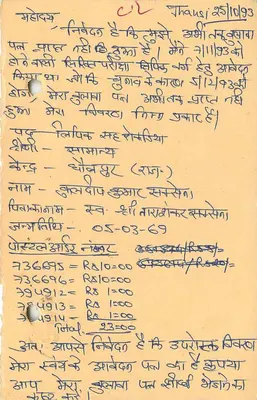 महोदय
निवेदन है कि मुझे अभी तक बुलावा
पत्र प्राप्त नहीं हुआ है। मैंने 7/11/93 को
होने वाली लिखित परीक्षा लिपिक वर्ग हेतु आवेदन
किया था। जो कि चुनाव के कारण 5/12/93 को
होगी, मेरा बुलावा पत्र अभी तक प्राप्त नहीं
हुआ मेरा विवरण निम्न प्रकार है।
पद लिपिक सह रोकड़िया
श्रेणी - सामान्य
केन्द्र - धौलपुर (राज॰)
नाम - कुलदीप कुमार सक्सेना
पिता का नाम - स्व. श्री सक्सेना
जन्मतिथि - 05-03-69
पोस्टल आर्डर नम्बर
736695 = Rs 10=00
736696 = Rs 10=00
794912 = Rs 1=00
794913 = Rs 1=00
794914 = Rs 1=00
Total 23=00
अतः आपसे निवेदन है कि उपरोक्त विवरण
मेरा स्वयं के आवेदन पत्र का है कृपया
आप मेरा बुलावा पत्र शीघ्र भेजने का
कष्ट करें।